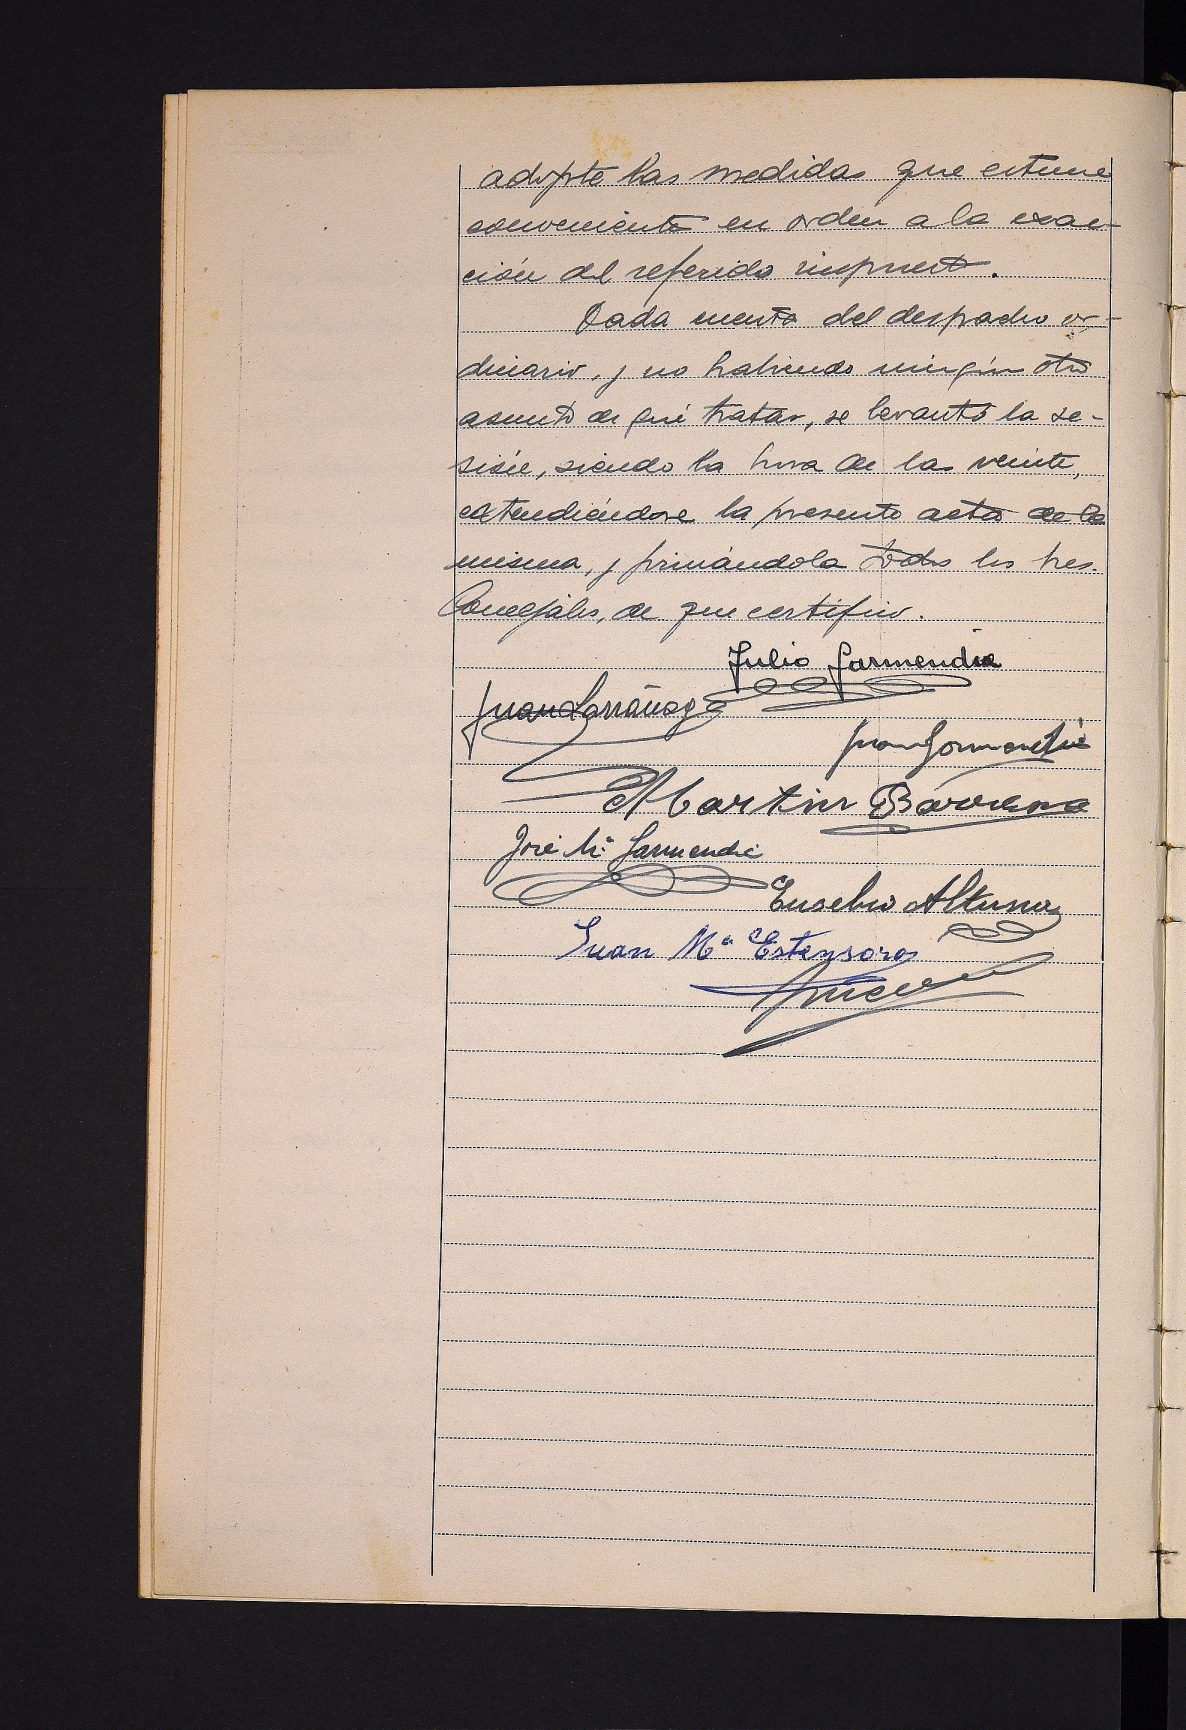 adopte las medidas que estime
conveniente en orden a la exac-
ción del referido impuesto.
Dada cuenta del despacho or-
dinario, y no habiendo ningún otro
asunto de qué tratar, se levantó la se-
sión, siendo la hora de las veinte,
extendiéndose la presente acta de la
misma, y firmándola todos los tres.
Concejales, de que certifico.
Julio Garmendia
Juan Larrañaga
Juan Garmendia
Martin Barrena
José Mª Garmendia
Eusebio Altuna
Juan Mª Estensoro